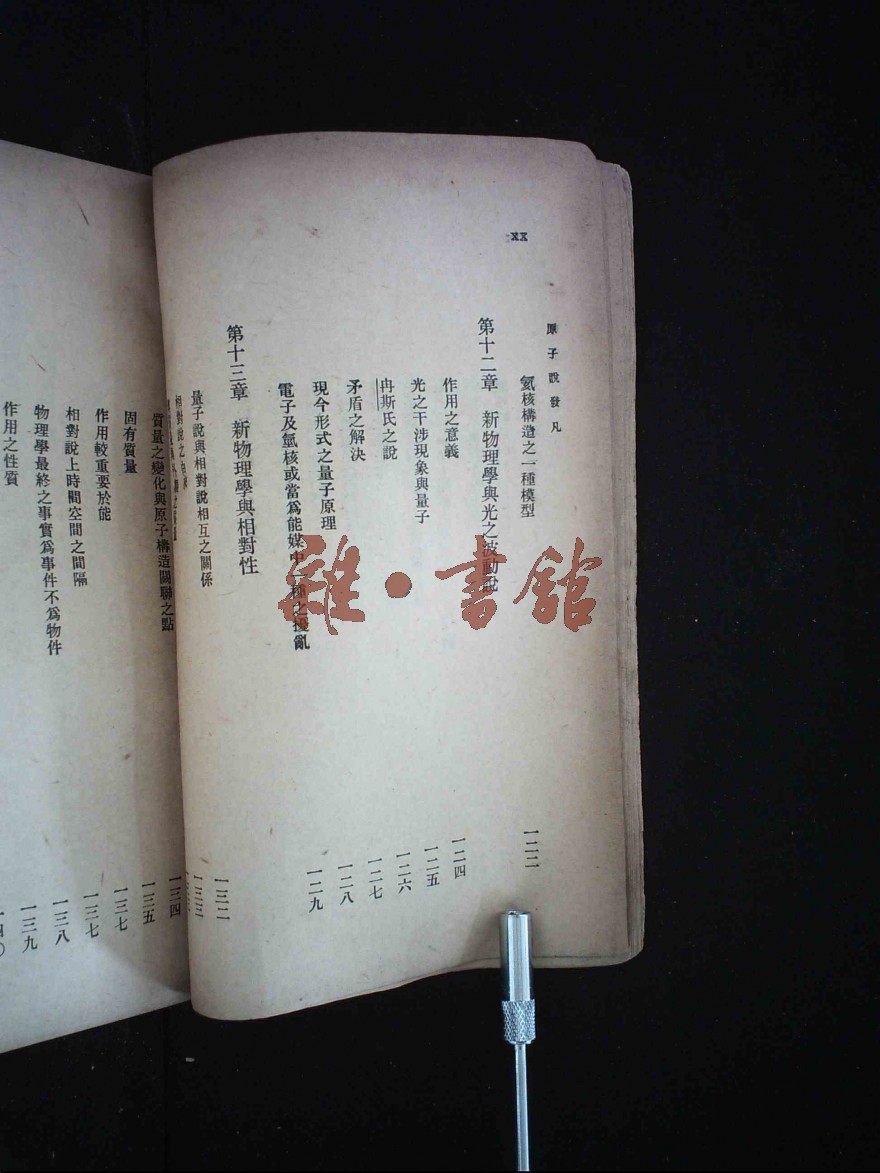 xx
原子說發凡
氦核構造之一種模型 一二二
第十二章 新物理學與光之波動說
作用之意義 一二四
光之干涉現象與量子 一二五
冉斯氏之說 一二六
矛盾之解決 一二七
現今形式之量子原理 一二八
電子及氫核或當爲能媒中一種之擾亂 一二九
第十三章 新物理學與相對性
量子說與相對說相互之關係 一三二
相對說之 一三三
質量之變化與原子構造關聯之點 一三四
固有質量 一三五
作用較重要於能 一三七
相對說上時間空間之間隔 一三七
物理學最終之事實爲事件不爲物件 一三八
作用之性質 一三九
一四〇
雜·書館